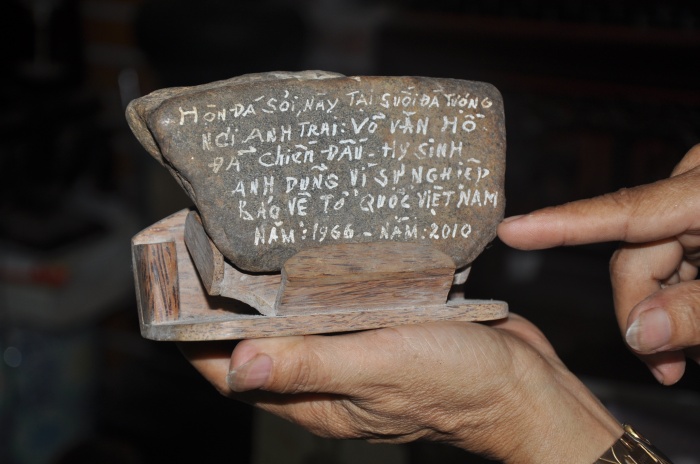 HÒN ĐÁ SỎI, NÀY TẠI SUỐI ĐÁ TƯỢNG
NƠI ANH TRAI: VÕ VĂN HỔ
ĐÃ CHIẾN ĐẤU - HY SINH
ANH DŨNG VÌ SỰ NGHIỆP
BẢO VỆ TỔ QUỐC VIỆT NAM
NĂM: 1966 - NĂM: 2010